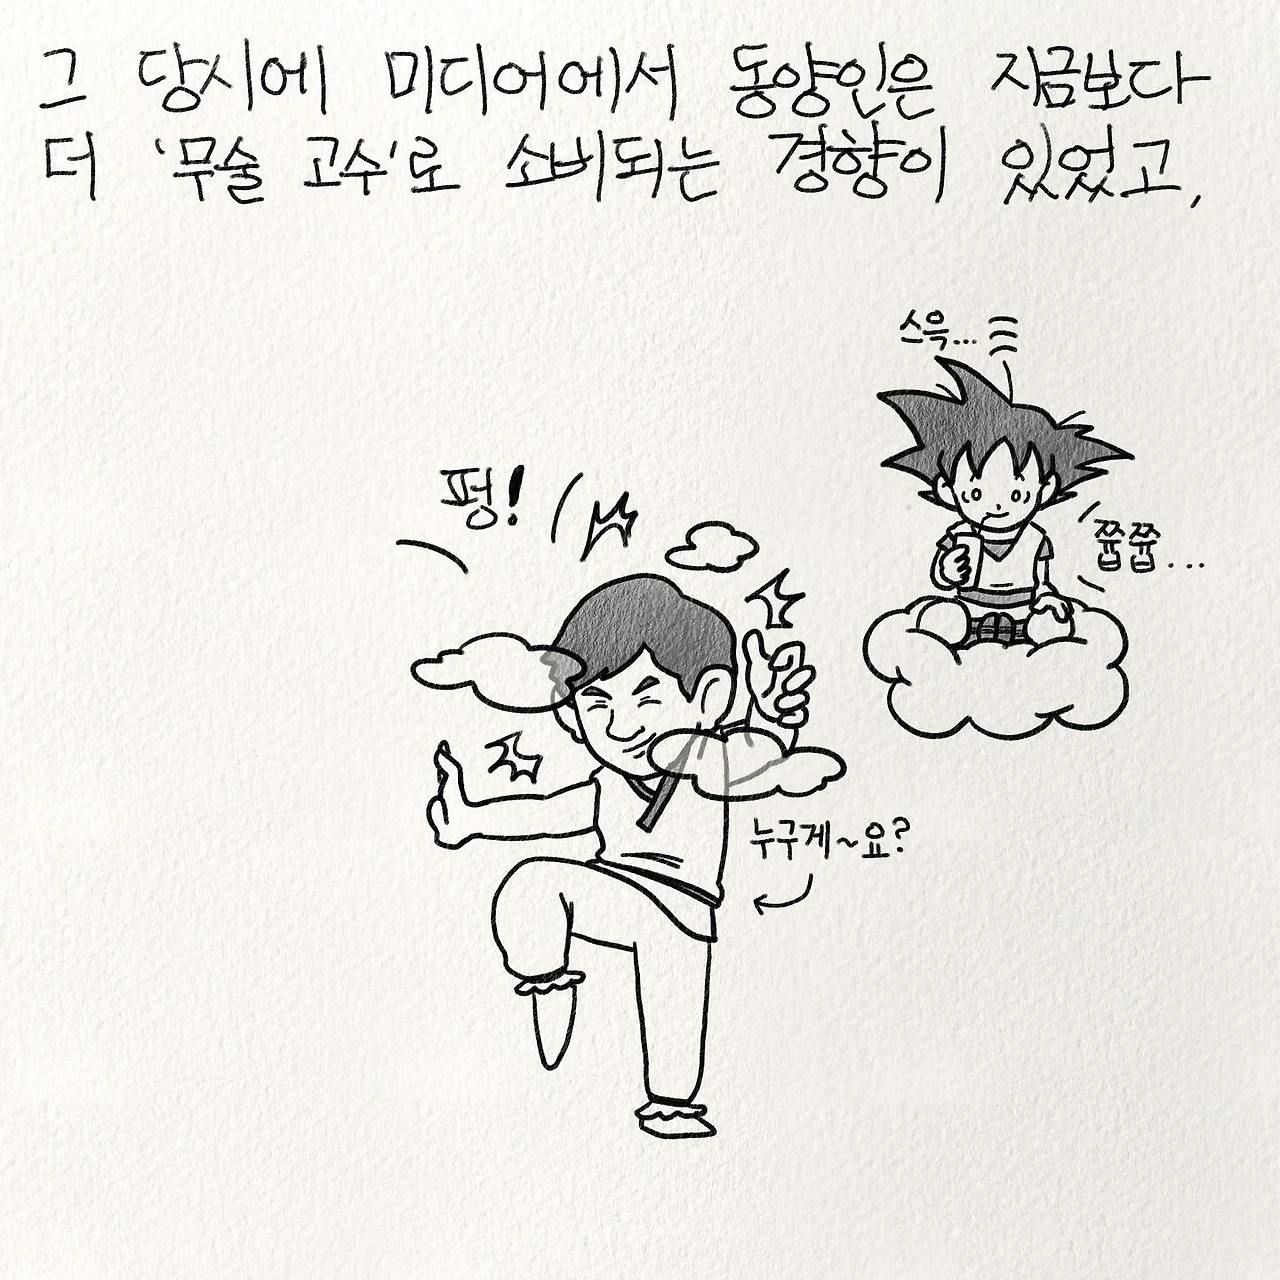 그 당시에 미디어에서 동양인은 지금보다
더 '무술 고수'로 소비되는 경향이 있었고,
스윽...
펑!
쭙쭙...
누구게~요?